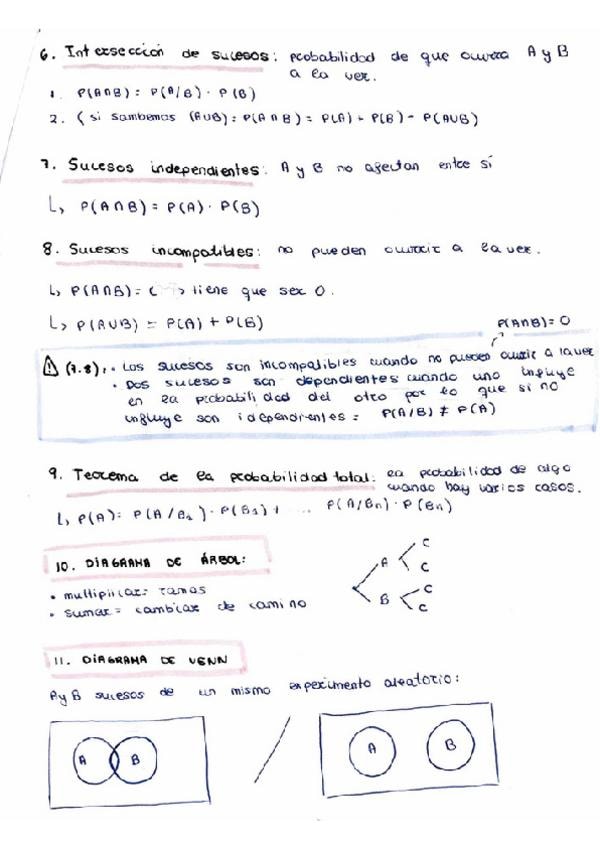 6. Intersección de sucesos: probabilidad de que ocurra A y B
a la vez.
1. P(A∩B) = P(A/B) · P(B)
2. (si sambemos (A∪B) = P(A∩B) = P(A) + P(B) - P(A∪B)
7. Sucesos independientes: A y B no afectan entre sí
↳ P(A∩B) = P(A) · P(B)
8. Sucesos incompatibles: no pueden ocurrir a la vez.
↳ P(A∩B) = → tiene que ser 0.
↳ P(A∪B) = P(A) + P(B)
P(A∩B) = 0
⚠ (7.8): • Los sucesos son incompatibles cuando no pueden ocurrir a la vez
• Dos sucesos son dependientes cuando uno influye
en la probabilidad del otro por lo que si no
influye son independientes = P(A/B) ≠ P(A)
9. Teorema de la probabilidad total: la probabilidad de algo
cuando hay varios casos.
↳ P(A): P(A/B1) · P(B1) + ... P(A/Bn) · P(Bn)
10. DIAGRAMA DE ÁRBOL:
• multiplicar= ramas
• sumar= cambiar de camino
A
B
C
C
C
C
11. DIAGRAMA DE VENN
A y B sucesos de un mismo experimento aleatorio:
A B
A B